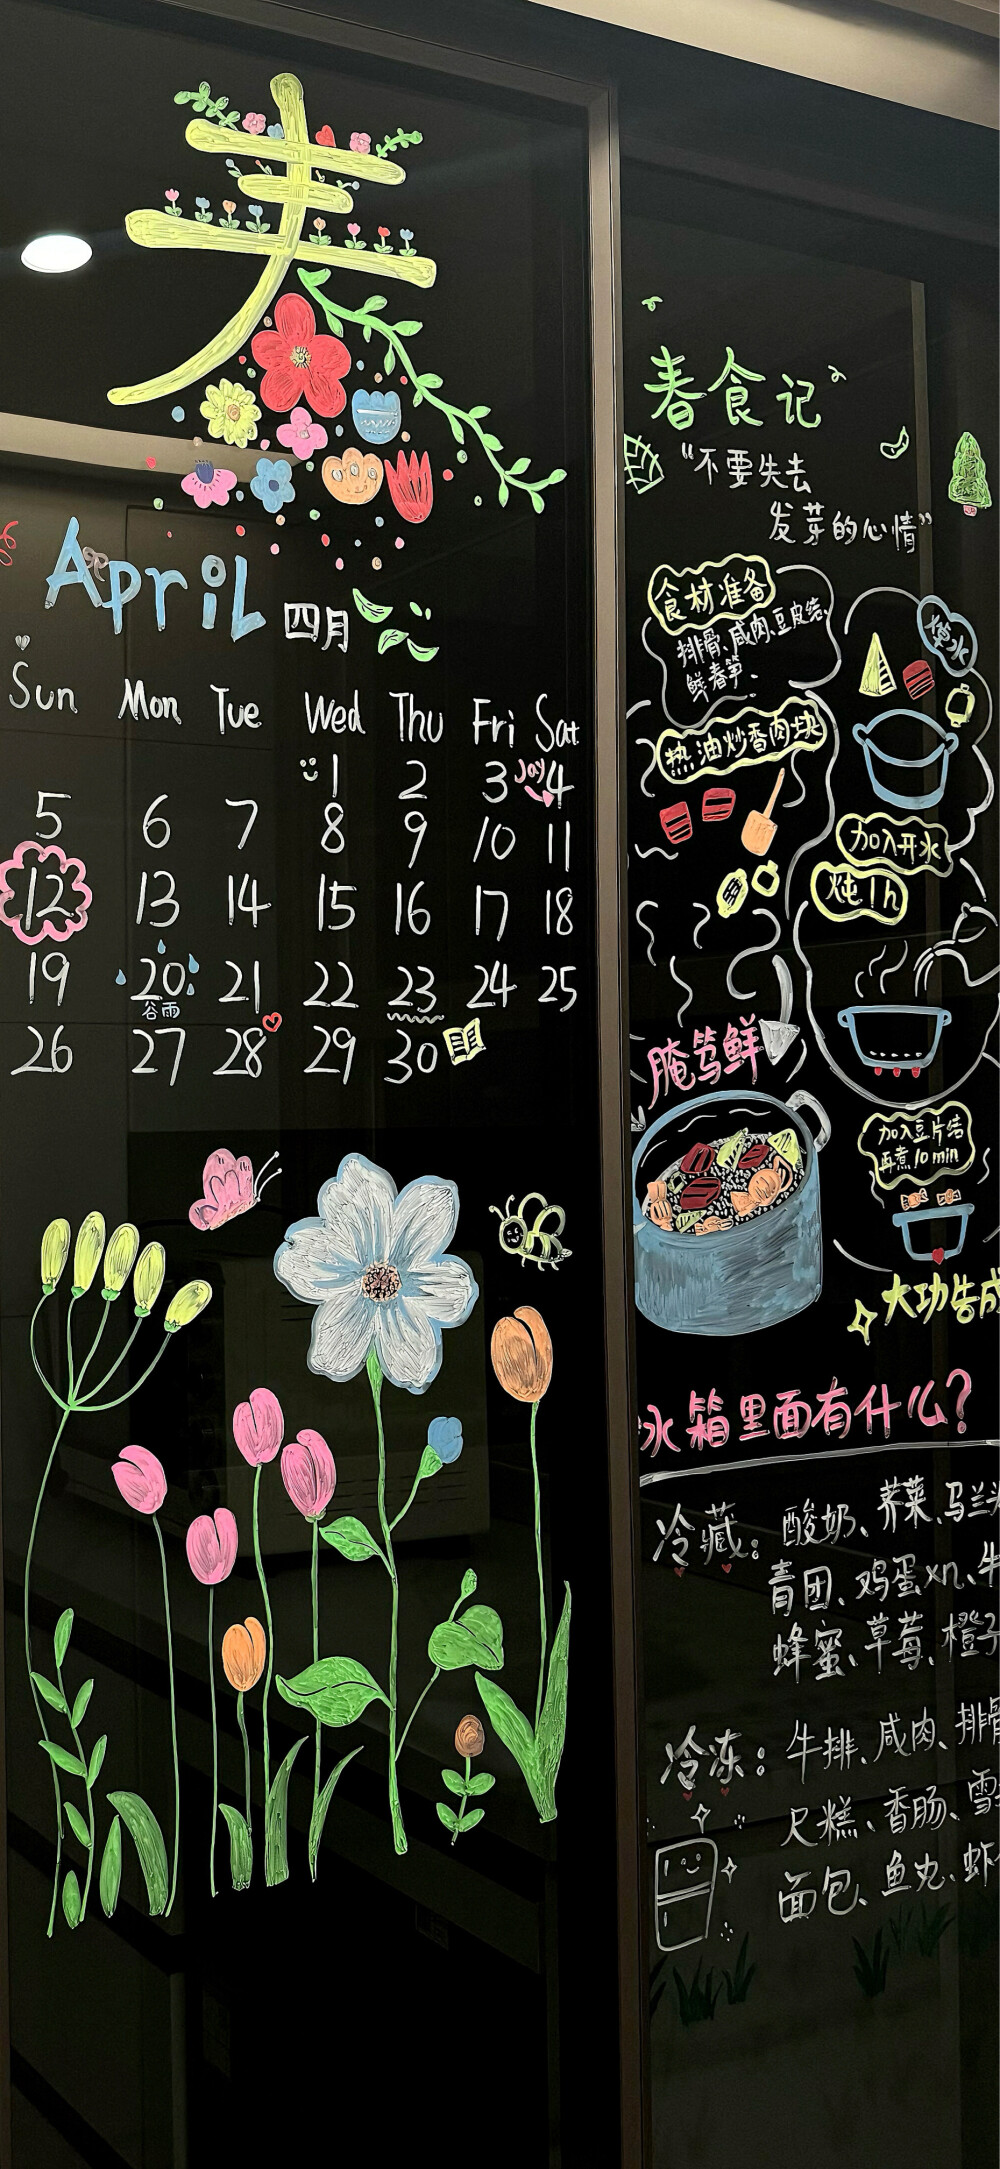 April 四月
Sun Mon Tue Wed Thu Fri Sat
1 2 3 Jay 4
5 6 7 8 9 10 11
12 13 14 15 16 17 18
19 20 21 22 23 24 25
谷雨
26 27 28 29 30
春食记
“不要失去
发芽的心情”
食材准备
排骨、咸肉、豆皮结、
鲜春笋、
焯水
热油炒香肉块
加入开水
炖1h
腌笃鲜
加入豆片结
再煮10min
大功告成
冰箱里面有什么?
冷藏:酸奶、荠菜、马兰头
青团、鸡蛋xn、牛
蜂蜜、草莓、橙子
冷冻:牛排、咸肉、排骨
尺糕、香肠、雪
面包、鱼丸、虾